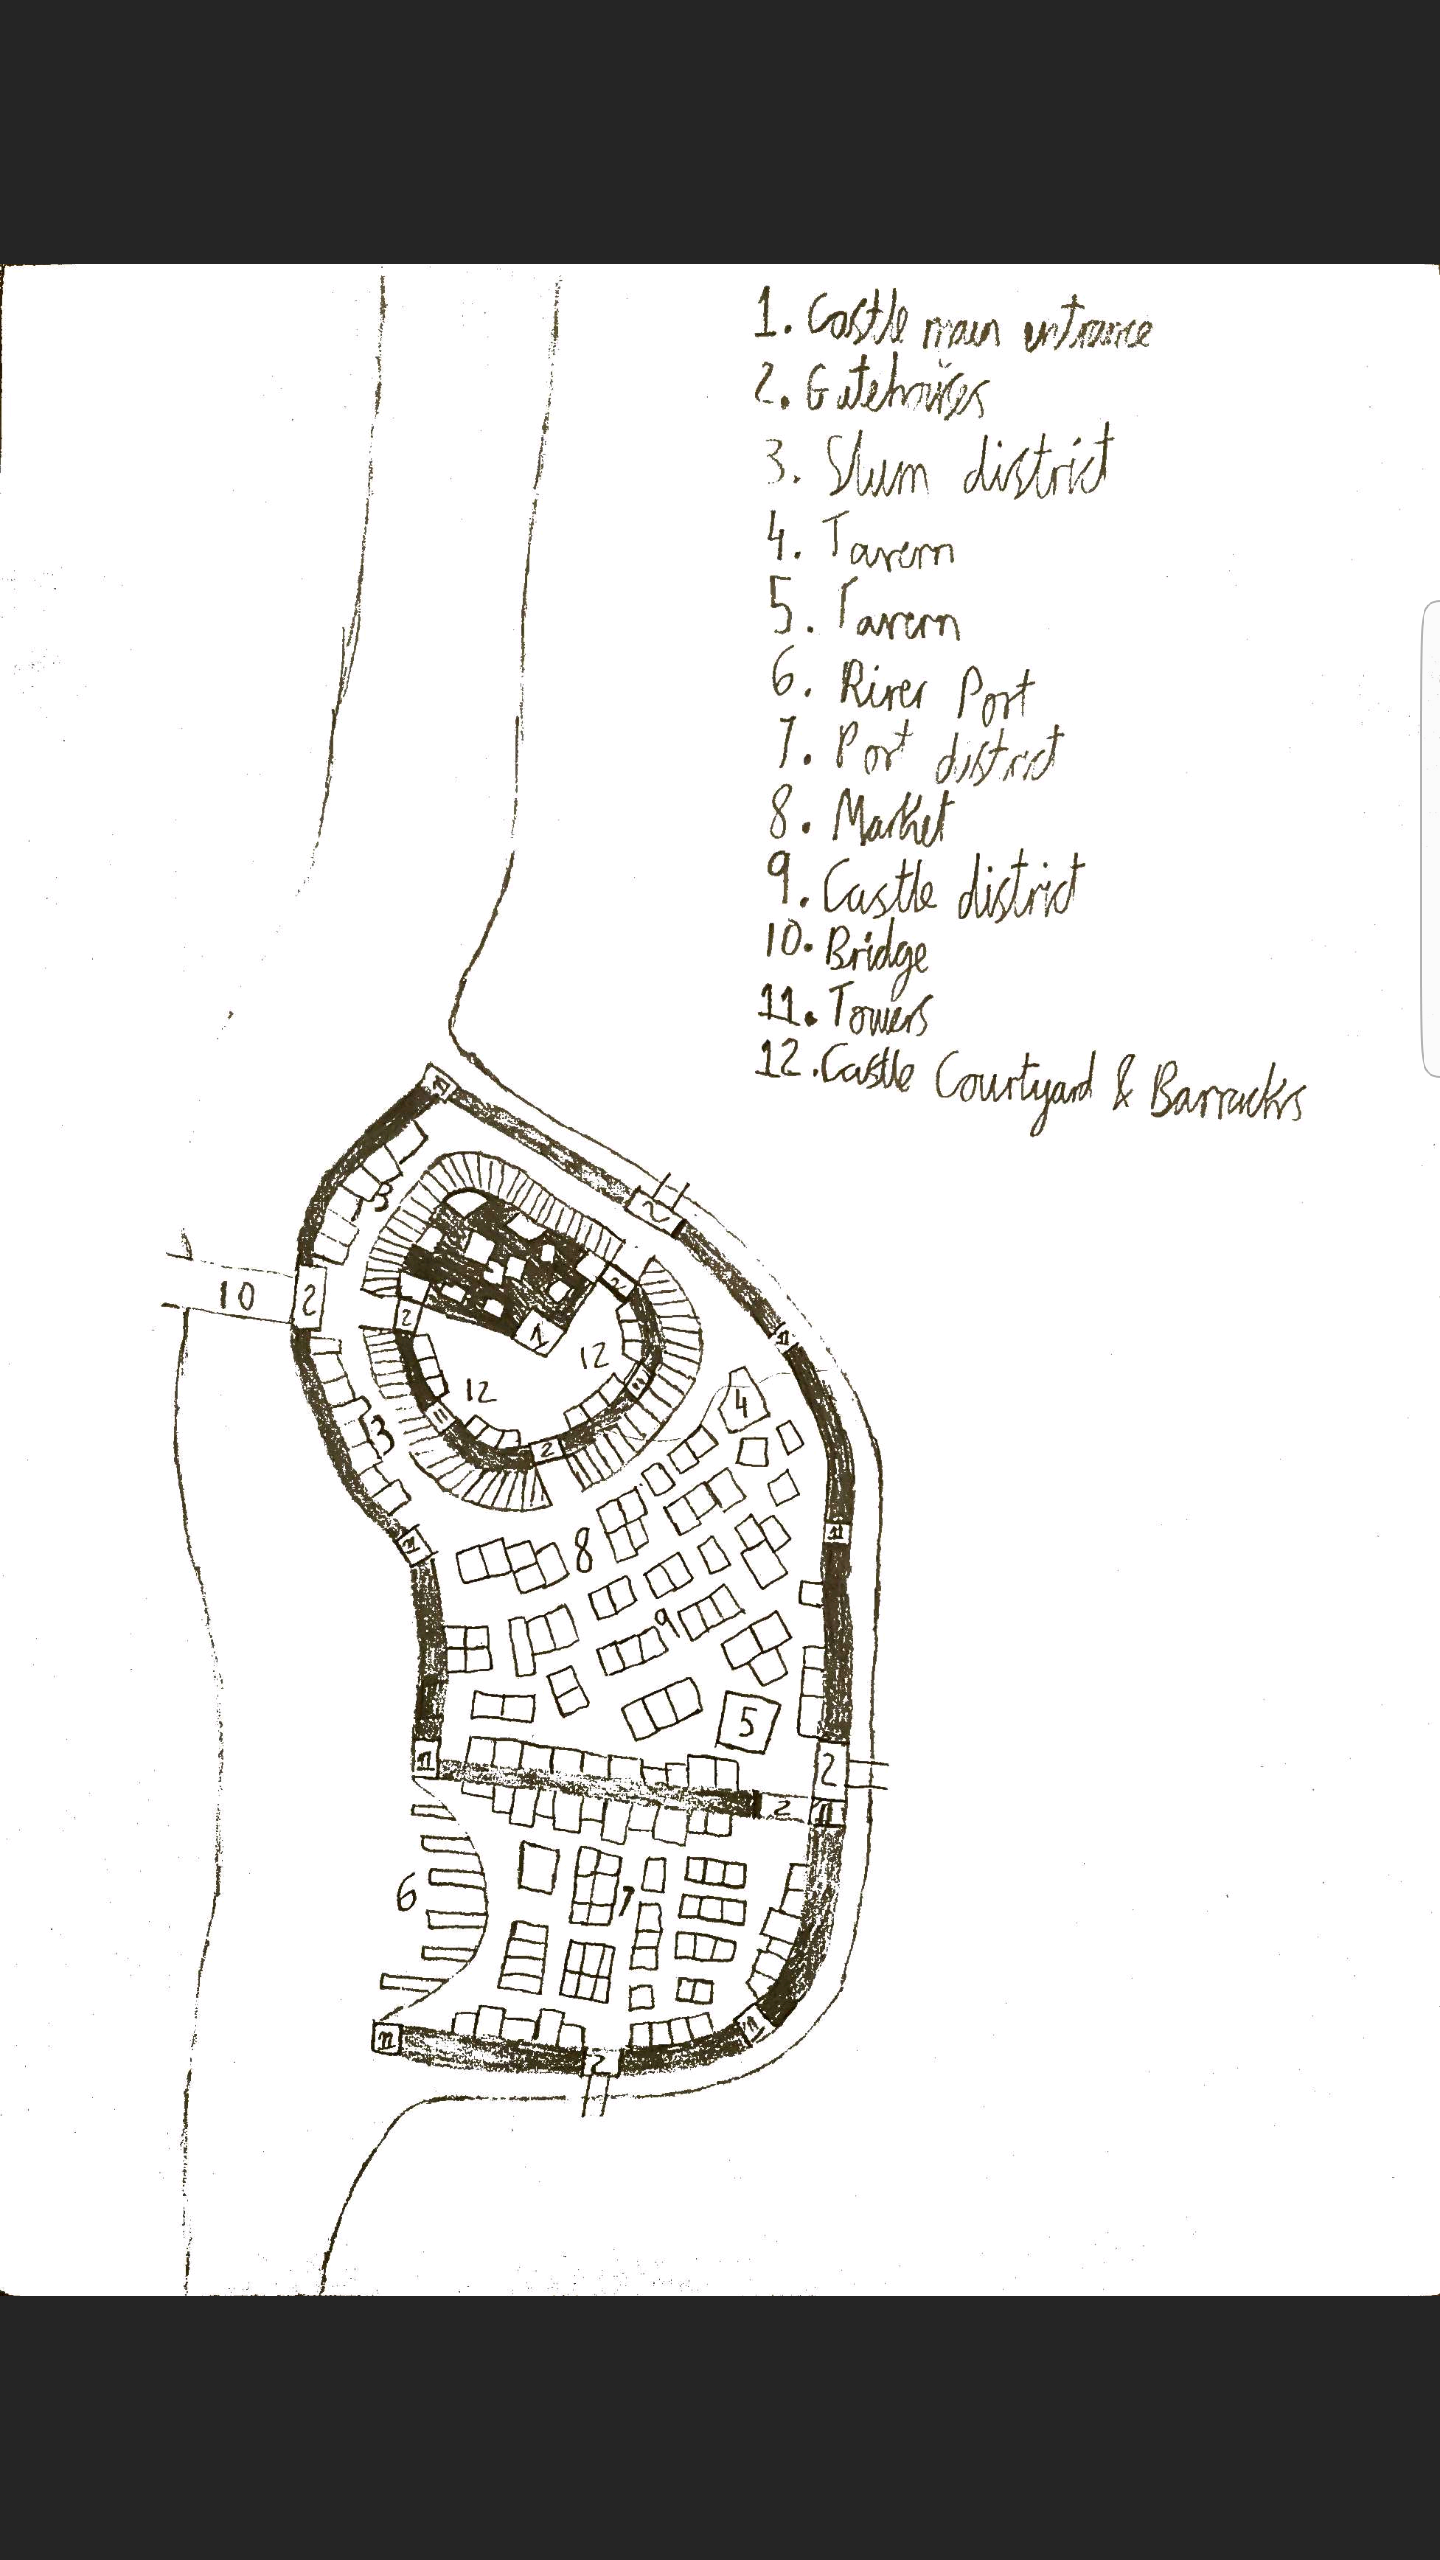 1. Castle main entrance
2. Gatehouses
3. Slum district
4. Tavern
5. Tavern
6. River Port
7. Port district
8. Market
9. Castle district
10. Bridge
11. Towers
12. Castle Courtyard & Barracks
11
3
2
2
10
2
2
1
11
12
12
11
4
3
11
2
11
8
11
9
5
11
2
2
11
6
7
11
11
2